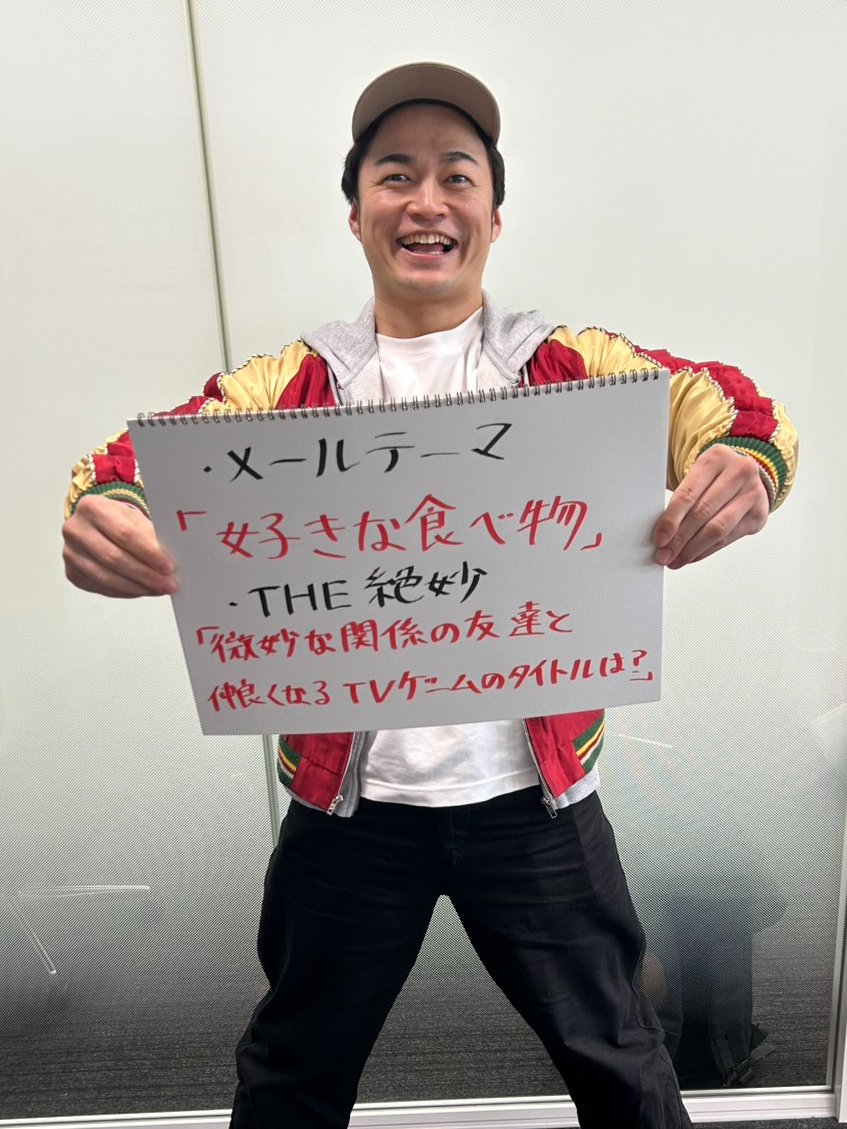 ・メールテーマ
「好きな食べ物」
・THE 絶妙
「微妙な関係の友達と
仲良くなるTVゲームのタイトルは?」